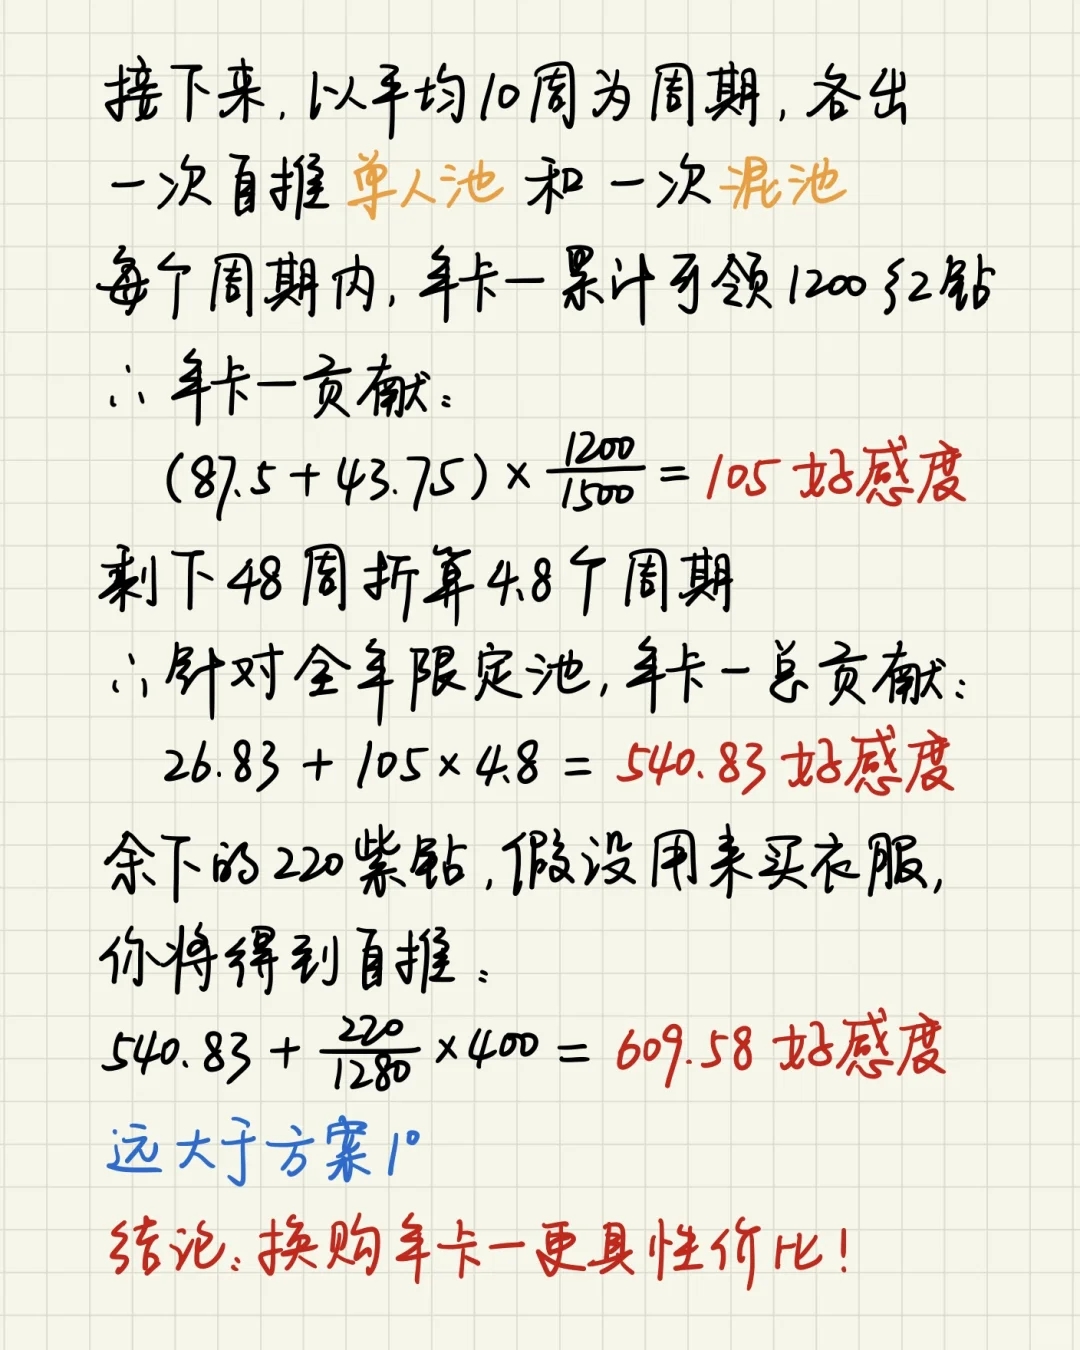 接下来，以平均10周为周期，各出
一次自推单人池和一次混池
每个周期内，年卡一累计可领1200红钻
∴年卡一贡献：
(87.5+43.75)×1200/1500=105好感度
剩下48周折算4.8个周期
∴针对全年限定池，年卡一总贡献：
26.83+105×4.8=540.83好感度
余下的220紫钻，假设用来买衣服，
你将得到自推：
540.83+220/1280×400=609.58好感度
远大于方案1°
结论：换购年卡一更具性价比！